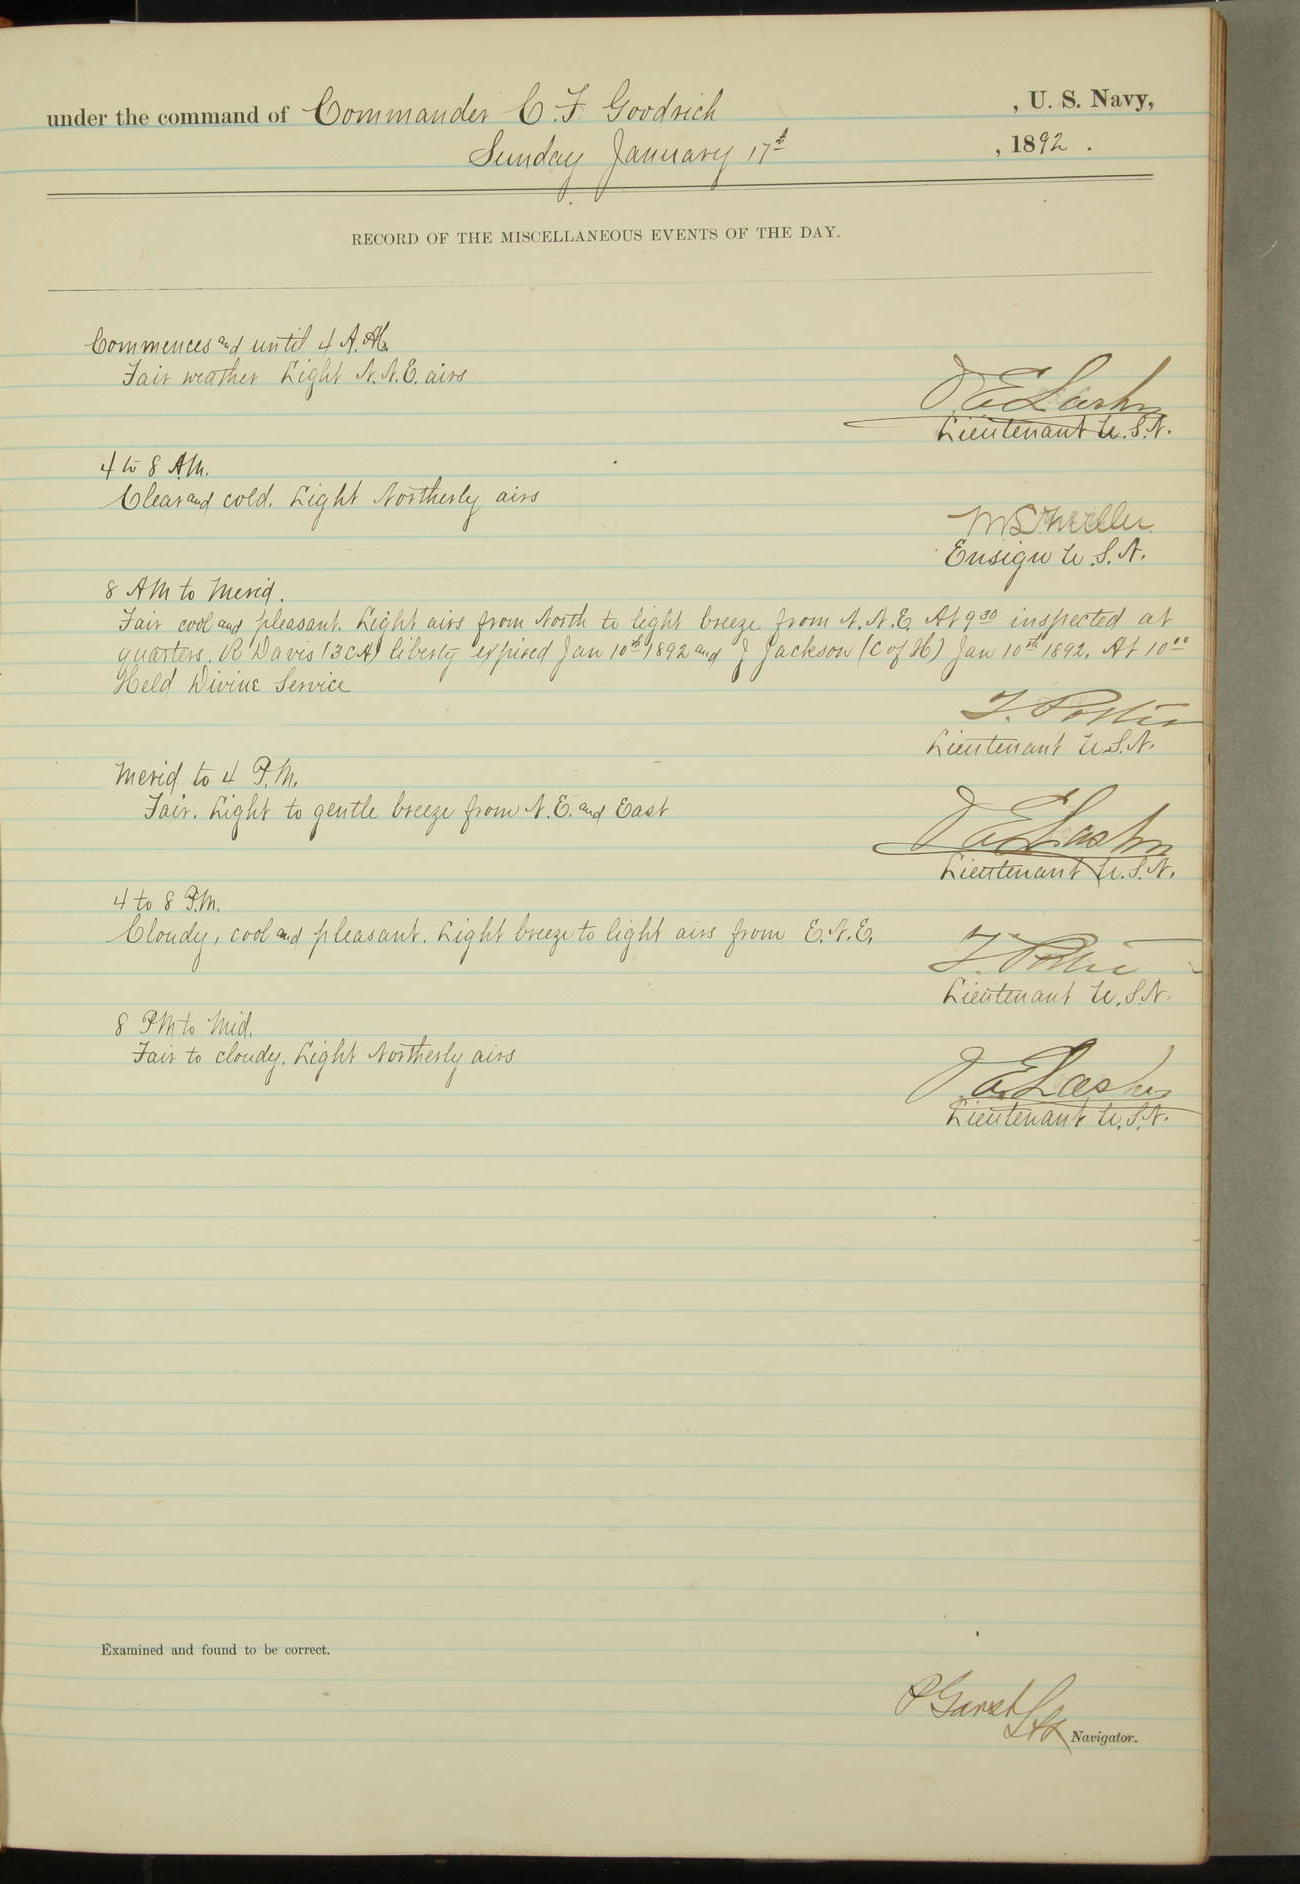 under the command of Commander C. F. Goodrich , U. S. Navy,
Sunday January 17th , 1892 .
RECORD OF THE MISCELLANEOUS EVENTS OF THE DAY.
Commences and until 4 A.M.
Fair weather Light N.N.E. airs
Lieutenant U.S.N.
4 to 8 A.M.
Clear and cold. Light Northerly airs
Ensign U.S.N.
8 AM to Merid.
Fair cool and pleasant. Light airs from North to light breeze from N.N.E. At 9 30 inspected at
quarters. R Davis (3CA) liberty expired Jan 10th 1892 and J Jackson (C of H) Jan 10th 1892. At 10 00
Held Divine Service
Lieutenant U.S.N.
Merid to 4 P.M.
Fair. Light to gentle breeze from N.E. and East
Lieutenant U.S.N.
4 to 8 P.M.
Cloudy, cool and pleasant. Light breeze to light airs from E.N.E.
Lieutenant U.S.N.
8 PM to Mid.
Fair to cloudy. Light Northerly airs
Lieutenant U.S.N.
Examined and found to be correct.
P Garst
Navigator.